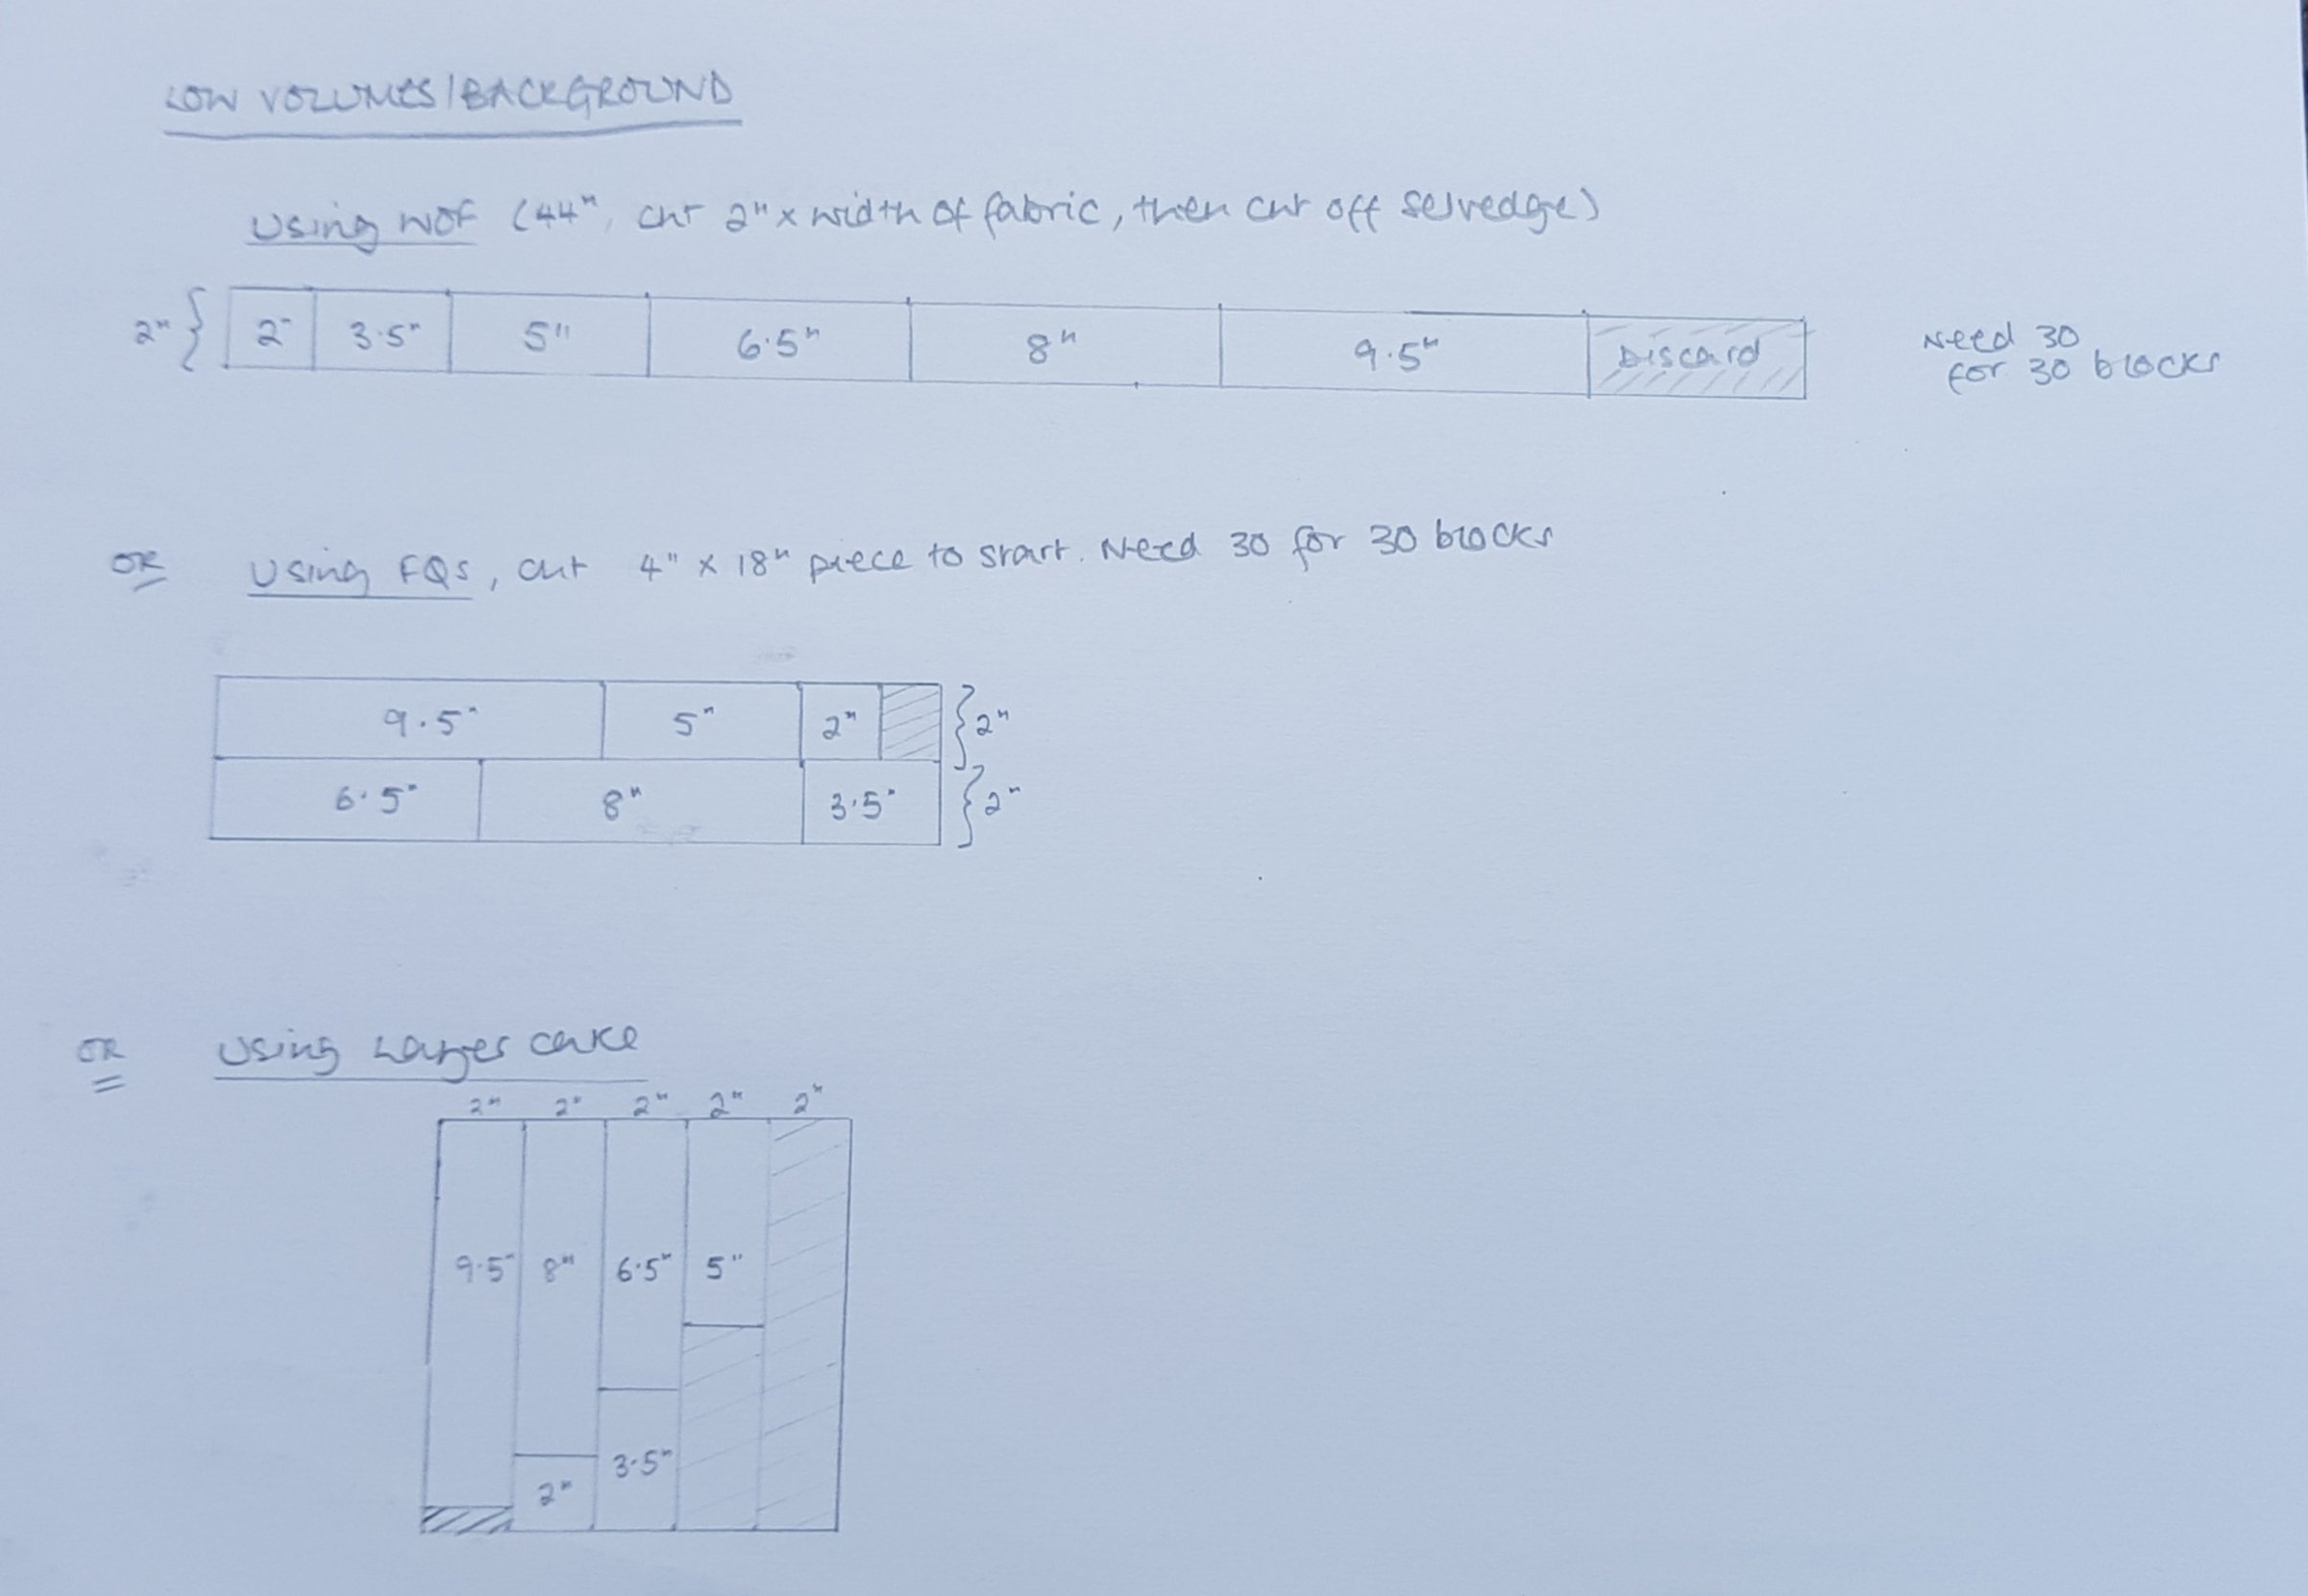 LOW VOLUMES/BACKGROUND
Using WOF (44", cut 2" x width of fabric, then cut off selvedge)
2" 2" 3.5" 5" 6.5" 8" 9.5" Discard
Need 30
for 30 blocks
OR Using FQs, cut 4" x 18" piece to start. Need 30 for 30 blocks
9.5" 5" 2" 2"
6.5" 8" 3.5" 2"
OR Using Layer cake
2" 2" 2" 2" 2"
9.5" 8" 6.5" 5"
3.5"
2"